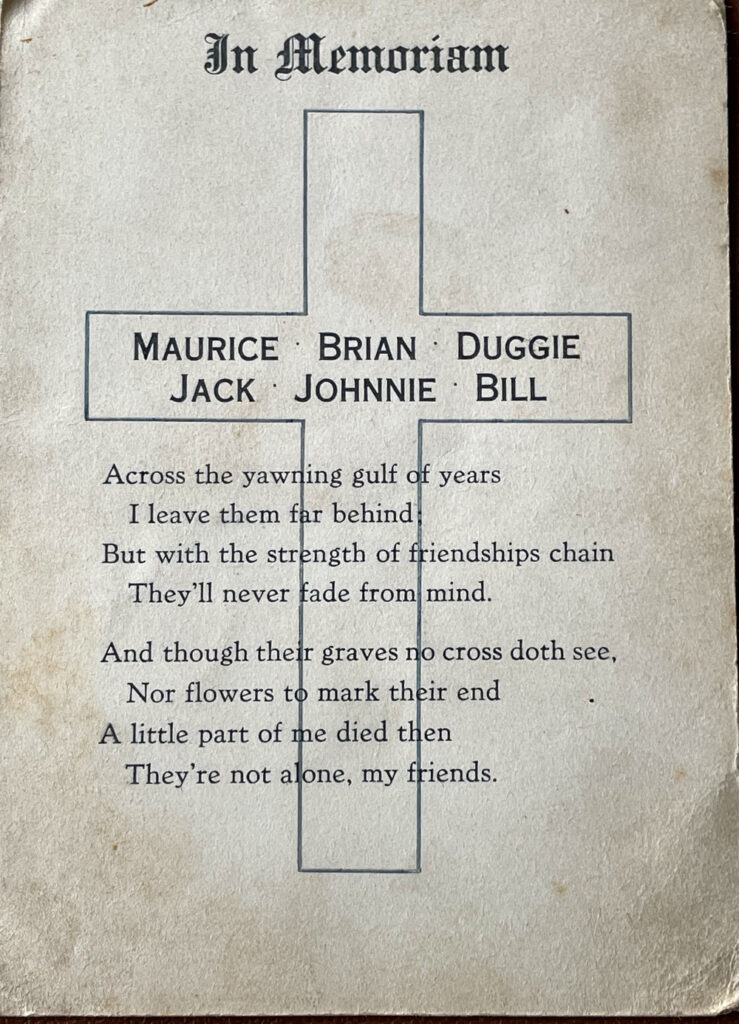 In Memoriam
MAURICE · BRIAN · DUGGIE
JACK · JOHNNIE · BILL
Across the yawning gulf of years
I leave them far behind;
But with the strength of friendships chain
They'll never fade from mind.
And though their graves no cross doth see,
Nor flowers to mark their end
A little part of me died then
They're not alone, my friends.